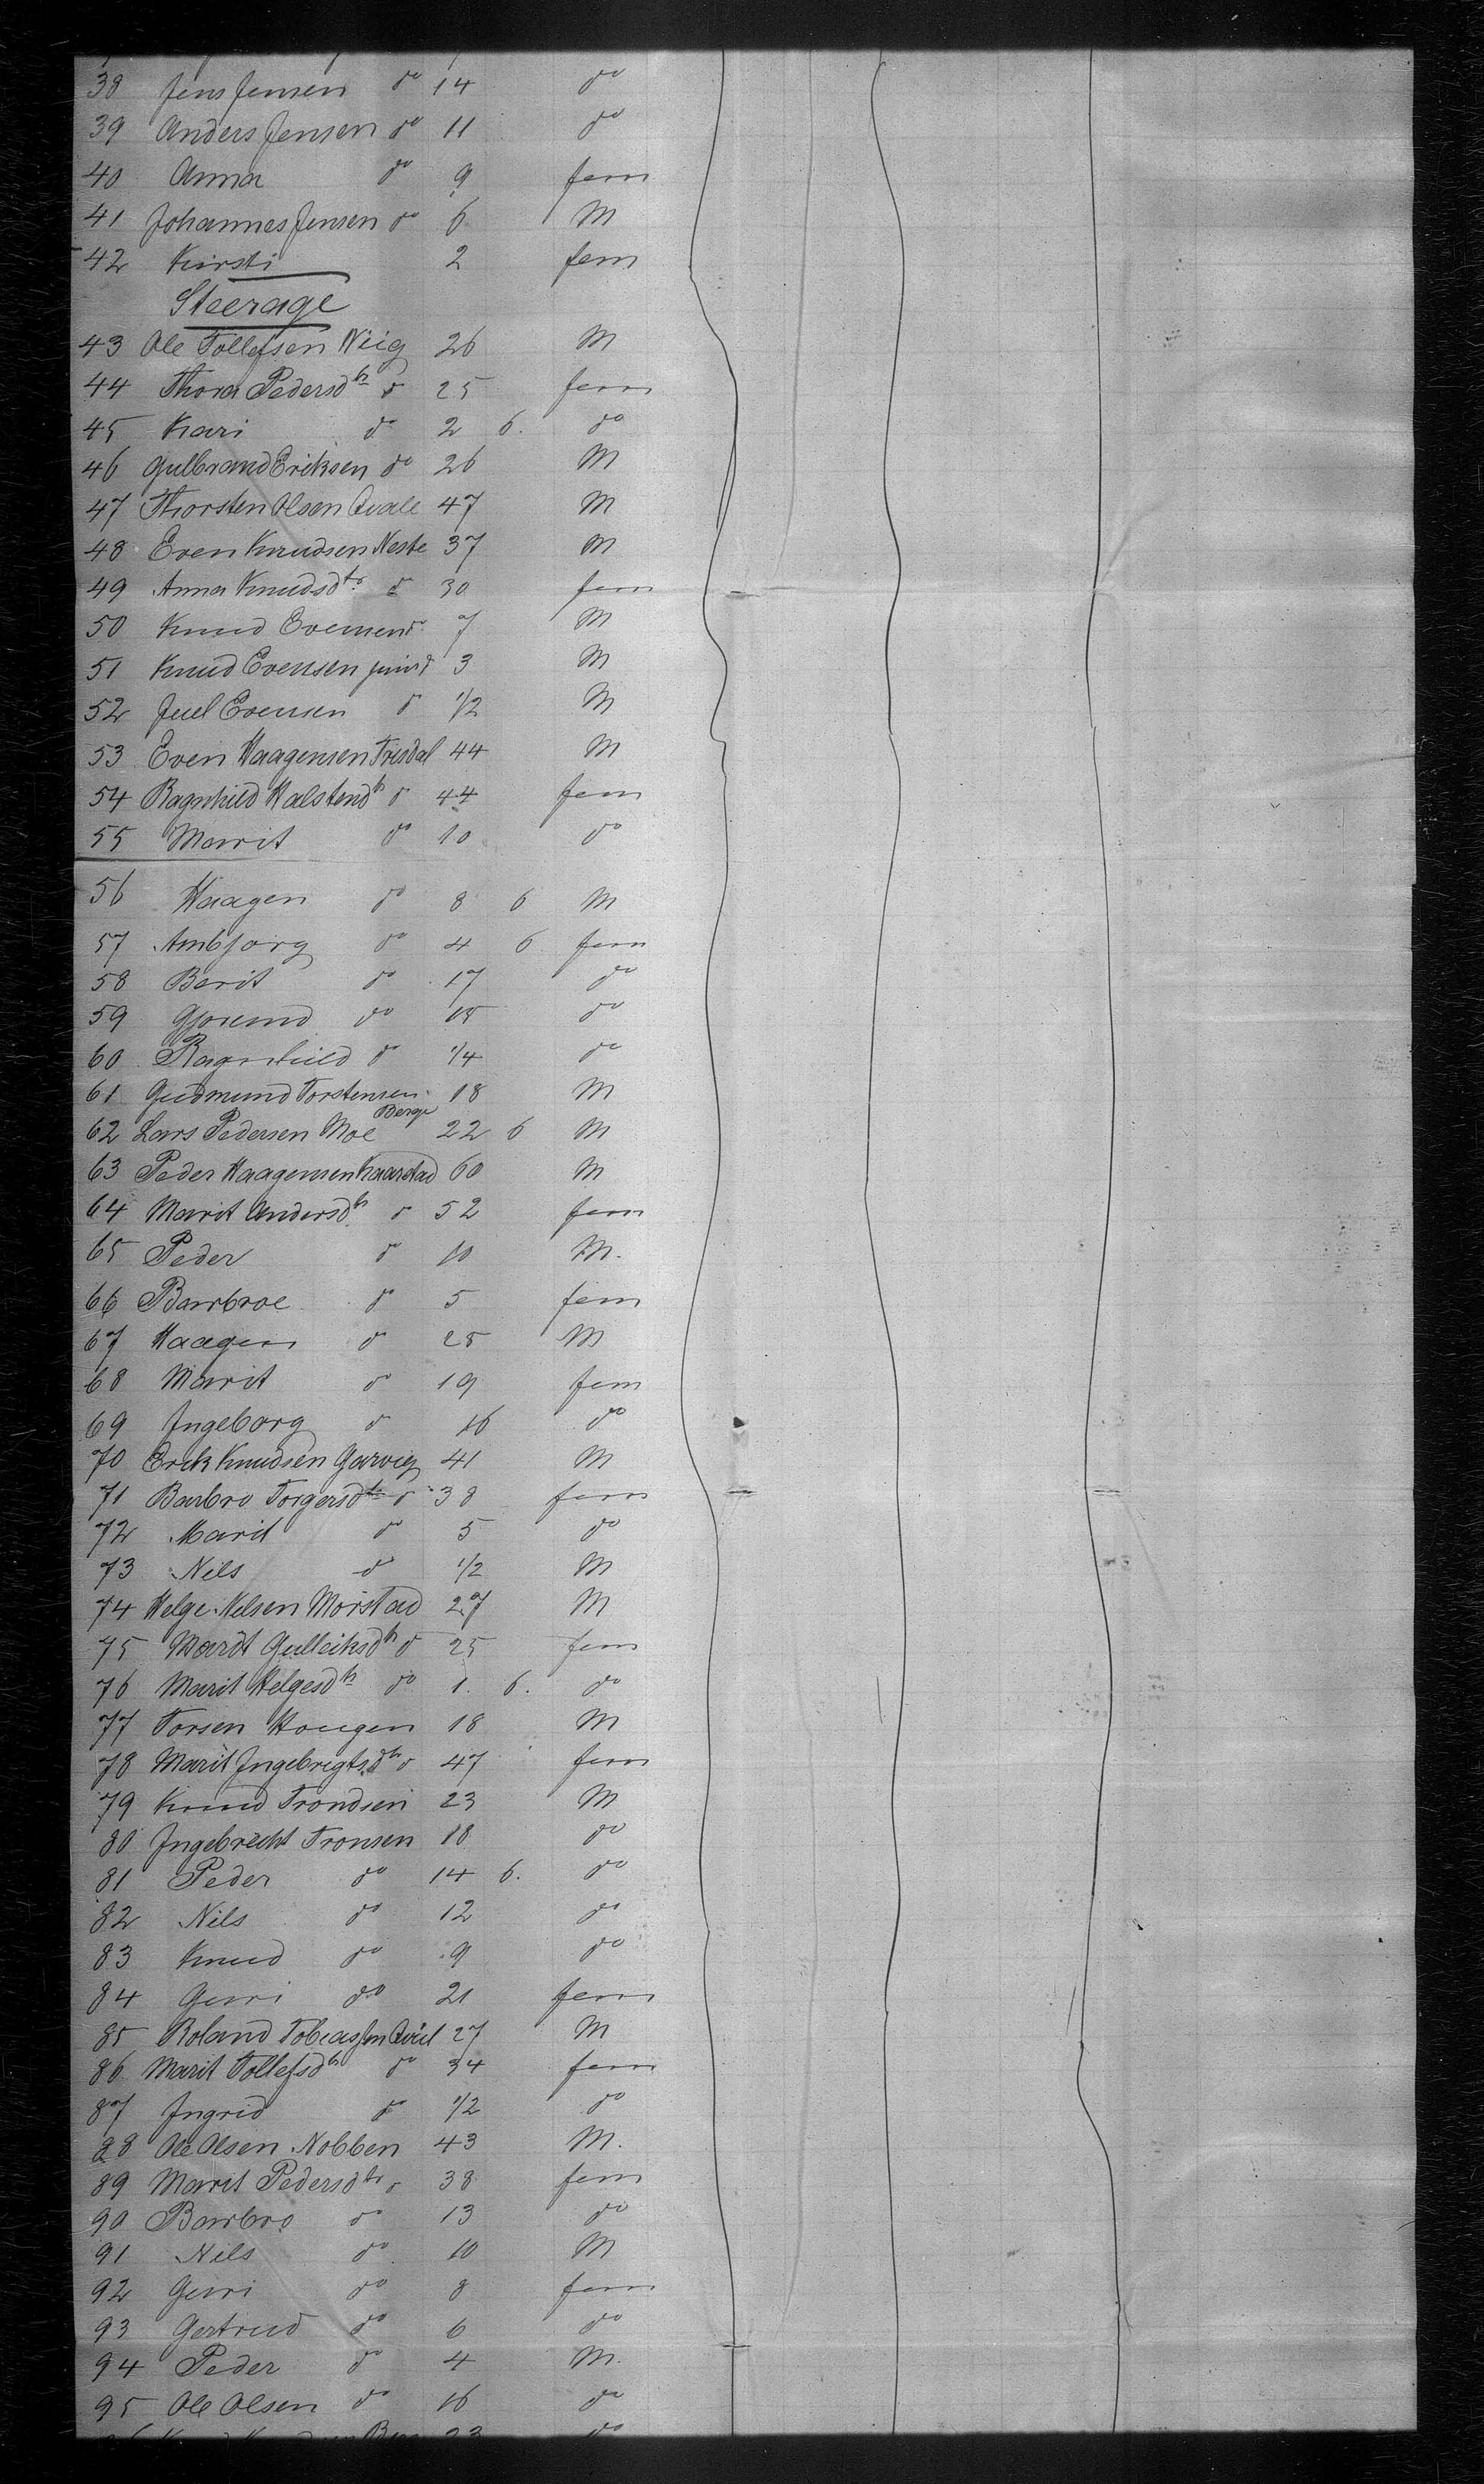 38 Jens Jensen do 14 do
39 Anders Jensen do 11 do
40 Anna do 9 fem
41 Johannes Jensen do 6 M
42 Kirsti 2 fem
Steerage
43 Ole Tollefsen Wiig 26 M
44 Thora Pedersdtr do 25 fem
45 Kari do 2 6. do
46 Gulbrand Eriksen do 26 M
47 Thorsten Olsen Qvale 47 M
48 Even Knudsen Neste 37 M
49 Anna Knudsdtr do 30 fem
50 Knud Evensen do 7 M
51 Knud Evensen junr do 3 M
52 Juel Evensen do 1/2 M
53 Even Haagensen 44 M
54 Ragnhild Halstendtr do 44 fem
55 Marit do 10 do
56 Haagen do 8 6 M
57 Ambjorg do 4 6 fem
58 Berit do 17 do
59 Gjorund do 15 do
60 Ragnhild do 1/4 do
61 Gudmund Torstensen 18 M
Berge
62 Lars Pedersen Moe 22 6 M
63 Peder Haagensen Kaarstad 60 M
64 Marit Andersdtr do 52 fem
65 Peder do 10 M.
66 Barbroe do 5 fem
67 Haagen do 25 M
68 Marit do 19 fem
69 Ingeborg do 16 do
70 Erik Knudsen Garvig 41 M
71 Barbro Torgersdtr do 38 fem
72 Marit do 5 do
73 Nils do 1/2 M
74 Helge Nelsen Morstad 27 M
75 Marit Gulleiksdtr do 25 fem
76 Marit Helgesdtr do 1. 6. do
77 Torsen Hougen 18 M
78 Marit Ingebrigtsdtr do 47 fem
79 Knud Trondsen 23 M
80 Ingebrecht Tronsen 18 do
81 Peder do 14 6. do
82 Nils do 12 do
83 Knud do 9 do
84 Guri do 21 fem
85 Roland Tobiassen 27 M
86 Marit Tollefsdtr do 34 fem
87 Ingrid do 1/2 do
88 Ole Olsen Nobben 43 M.
89 Marit Pedersdtr do 38 fem
90 Barbro do 13 do
91 Nils do 10 M
92 Guri do 8 fem
93 Gertrud do 6 do
94 Peder do 4 M.
95 Ole Olsen do 16 do